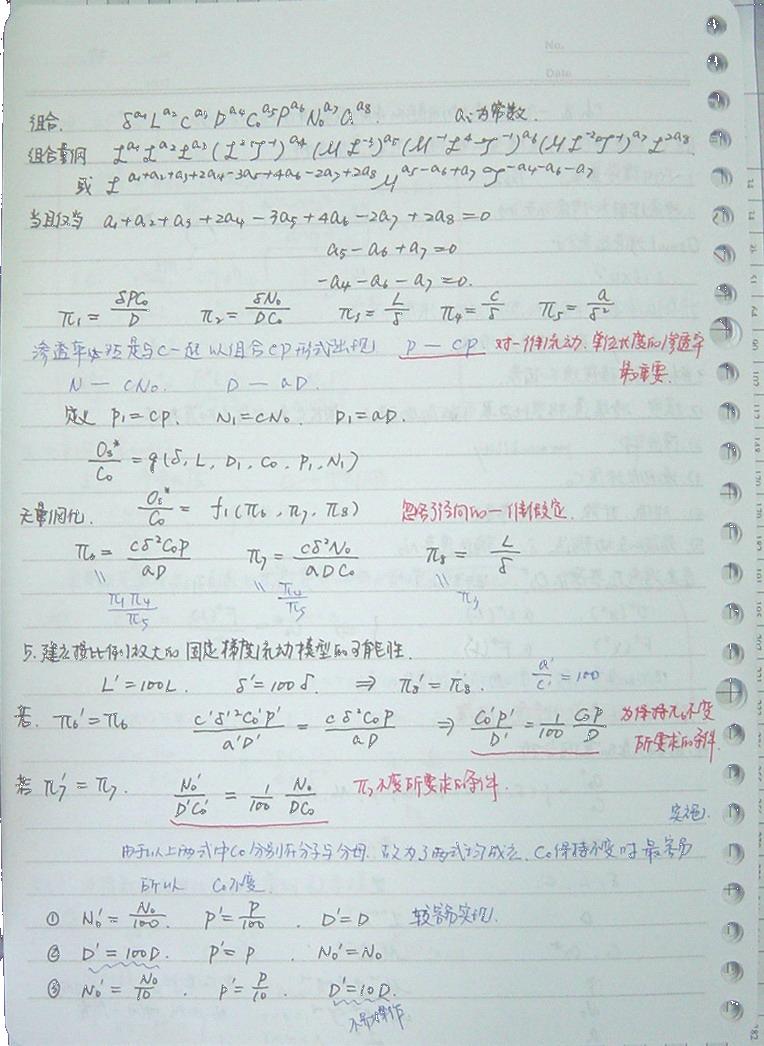 No.
Date
组合. δ^a₁ L^a₂ c^a₃ D^a₄ C₀^a₅ P^a₆ N₀^a₇ a^a₈ aᵢ为常数.
组合量纲 L^a₁ L^a₂ L^a₃ (L²T⁻¹)^a₄ (ML⁻³)^a₅ (M⁻¹L⁴T⁻¹)^a₆ (ML⁻²T⁻¹)^a₇ L^2a₈
或 L^(a₁+a₂+a₃+2a₄-3a₅+4a₆-2a₇+2a₈) M^(a₅-a₆+a₇) T^(-a₄-a₆-a₇)
当且仅当 a₁+a₂+a₃+2a₄-3a₅+4a₆-2a₇+2a₈=0
a₅-a₆+a₇=0
-a₄-a₆-a₇=0.
π₁=δPC₀/D π₂=δN₀/DC₀ π₃=L/δ π₄=c/δ π₅=a/δ²
渗透率P还是与c一起以组合cp形式出现 P — cP 对一维流动,单位长度的渗透率
最重要.
N — cN₀. D — aD.
定义 P₁=cP. N₁=cN₀. D₁=aD.
Os*/C₀ = g(δ, L, D₁, C₀, P₁, N₁)
无量纲化. Os*/C₀ = f₁(π₆, π₇, π₈) 忽略了径向的一维假定.
π₆=cδ²C₀P/aD π₇=cδ²N₀/aDC₀ π₈=L/δ
‖ π₁π₄/π₅ ‖ π₃
5.建立按比例放大的固定梯度流动模型的可能性.
L'=100L. δ'=100δ. ⇒ π₈'=π₈. a'/c'=100
若. π₆'=π₆ c'δ'²C₀'P'/a'D' = cδ²C₀P/aD ⇒ C₀'P'/D' = 1/100 C₀P/D 为保持π₆不变
所要求的条件.
若 π₇'=π₇. N₀'/D'C₀' = 1/100 N₀/DC₀ π₇不变所要求的条件.
实施.
由于以上两式中C₀分别在分子与分母. 故为了两式均成立. C₀保持不变时最容易
所以 C₀不变
① N₀'=N₀/100. P'=P/100. D'=D 较容易实现.
② D'=100D. P'=P. N₀'=N₀
③ N₀'=N₀/10. P'=P/10. D'=10D.
不易操作